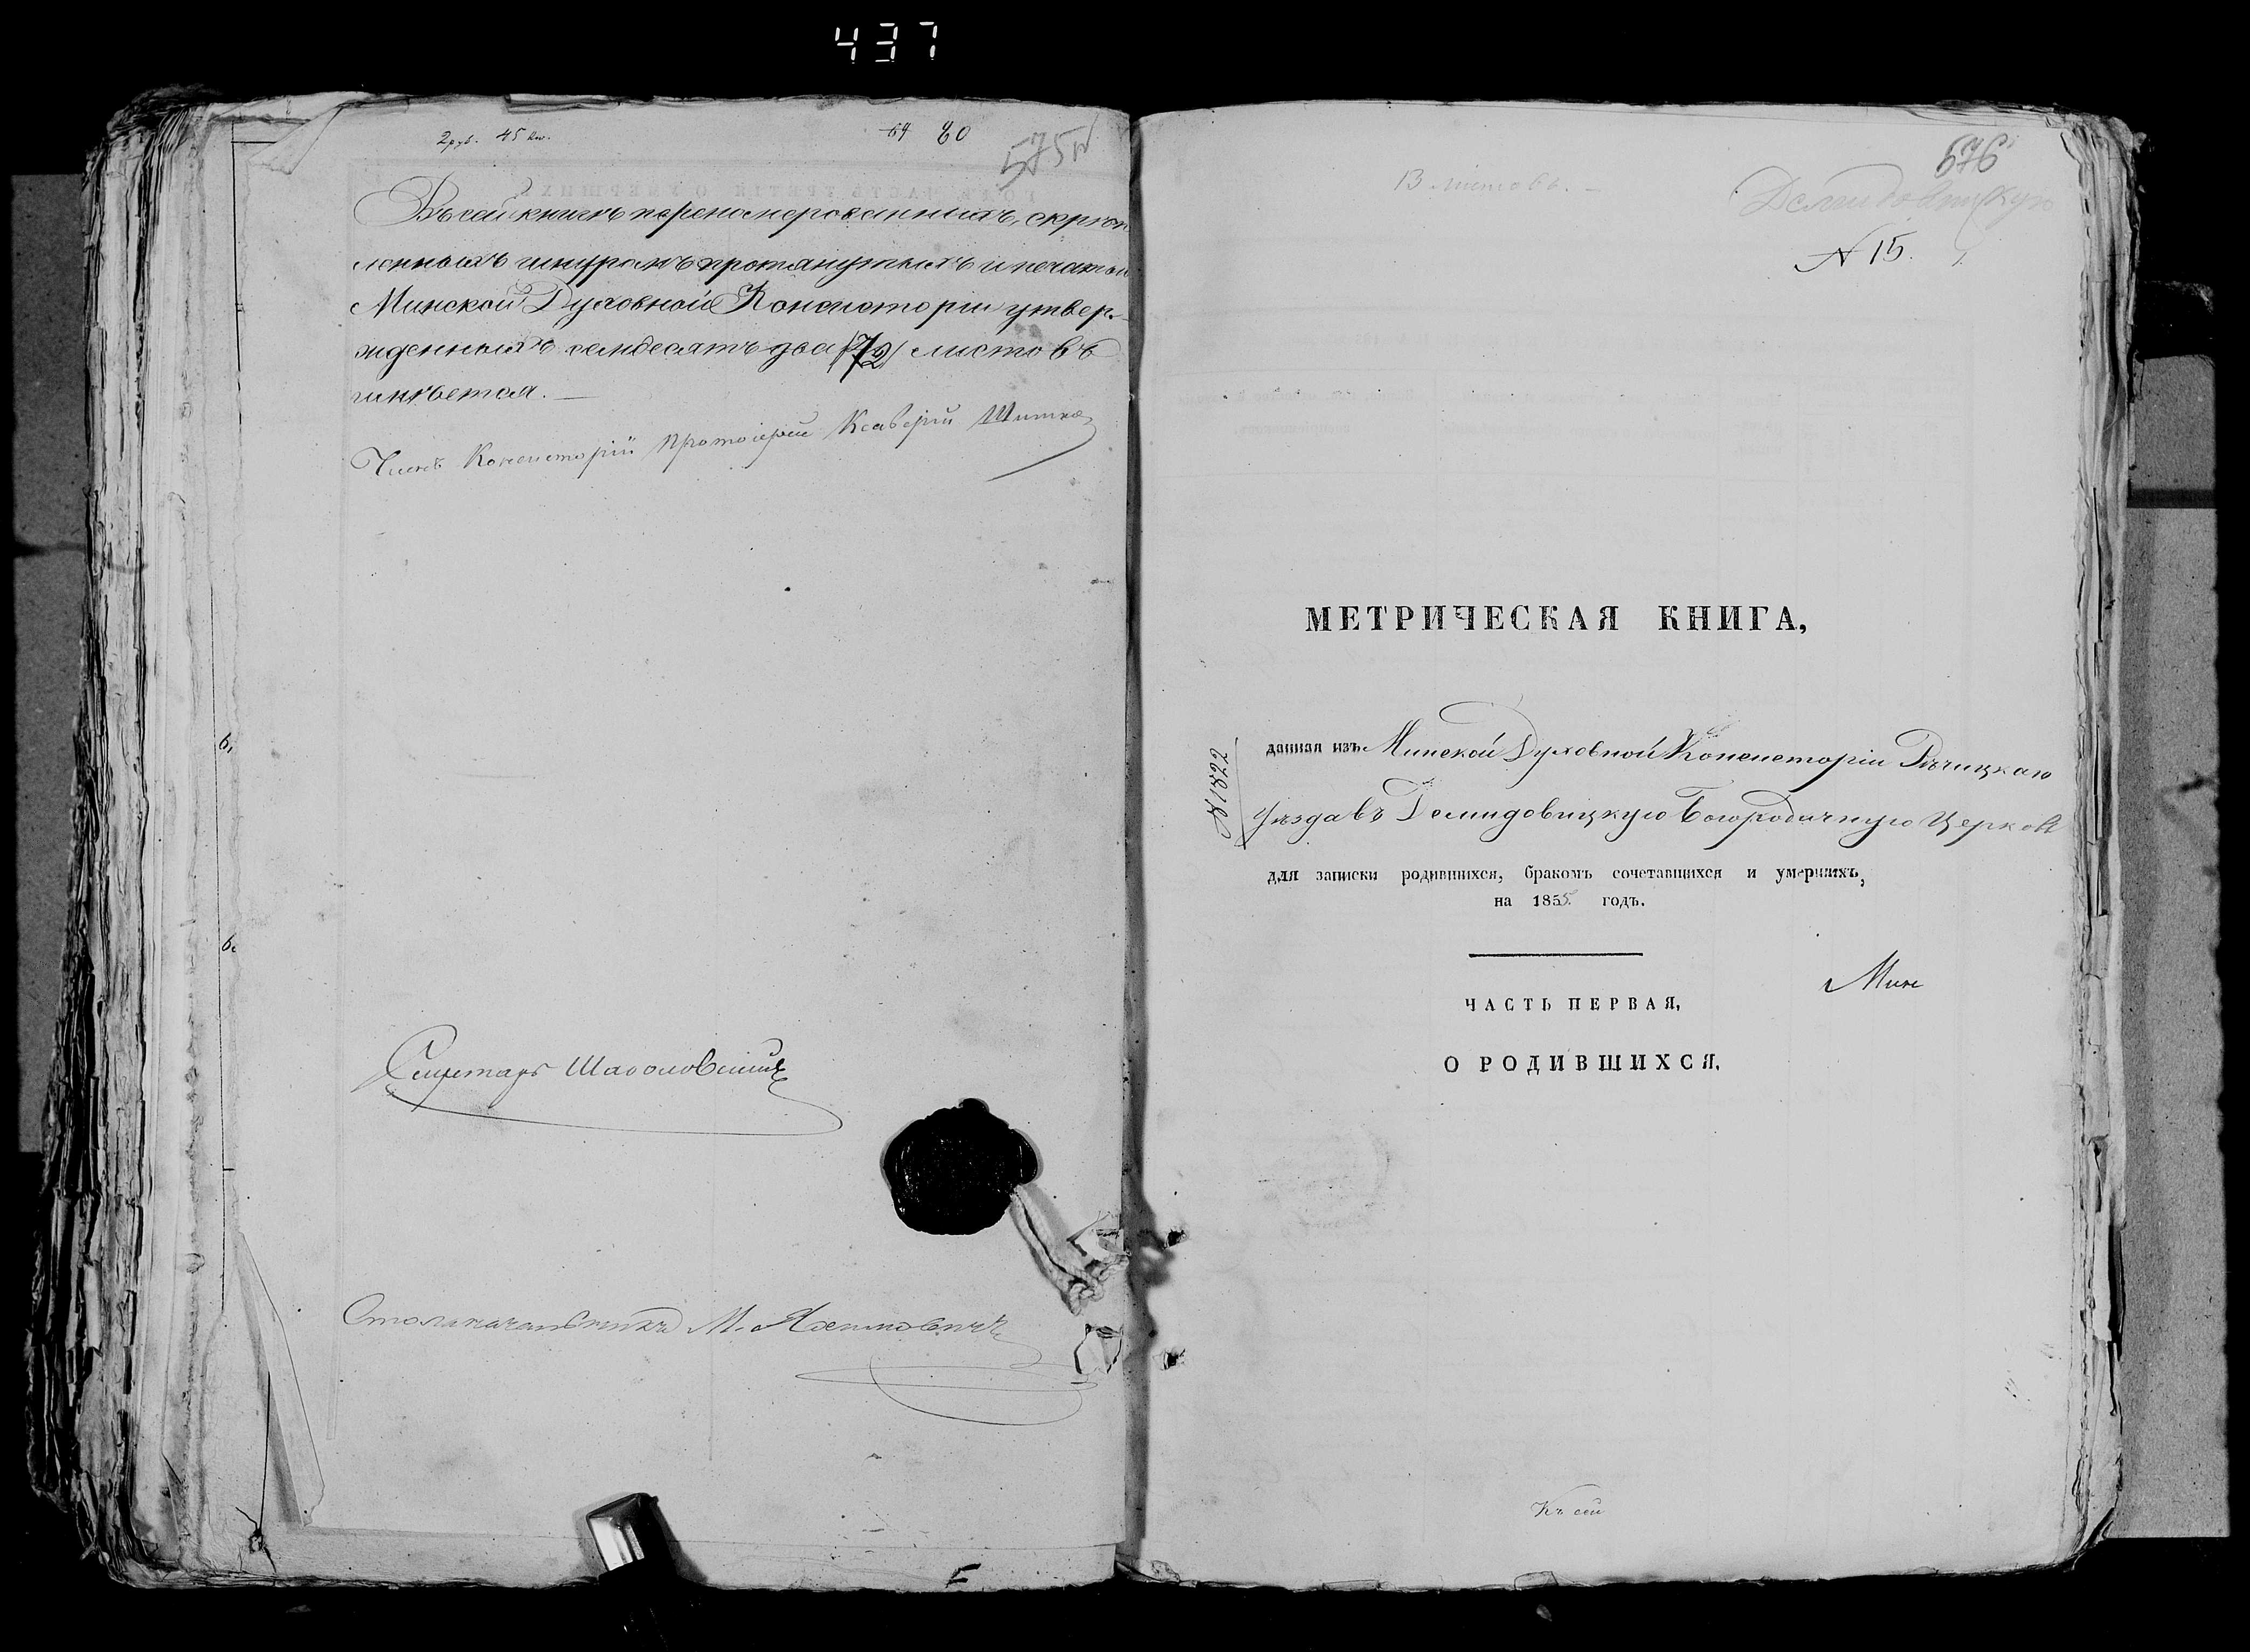 437
2 руб. 45 ко.
64 80
575 об
Въ сей книгѣ перенумерованныхъ, скрѣп
ленныхъ шнуромъ протянутыхъ и печатью
Минской Духовной Консисторіи утвер-
жденныхъ семдесятъ два (72) листовъ
имѣется. —
Членъ Консисторіи Протоіерей Ксаверій
Секретарь
Столоначальникъ М.
13 листовъ. —
576
Демидовицкую
N 15.
МЕТРИЧЕСКАЯ КНИГА,
N 1522
данная изъ Минской Духовной Консисторіи Рѣчицкаго
Уѣзда въ Демидовицкую Богородичную Церковь
для записки родившихся, бракомъ сочетавшихся и умершихъ,
на 1855 годъ.
ЧАСТЬ ПЕРВАЯ,
Мин
О РОДИВШИХСЯ.
Къ сей